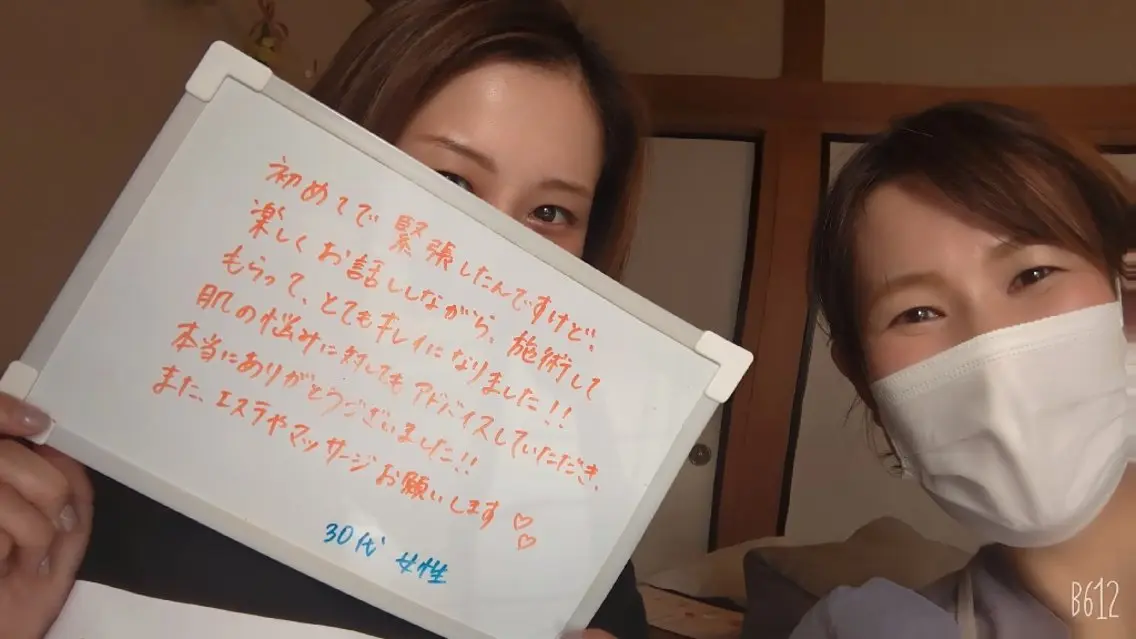 初めてで緊張したんですけど、
楽しくお話ししながら、施術して
もらって、とてもキレイになりました!!
肌の悩みに対してもアドバイスしていただき、
本当にありがとうございました!!
また、エステやマッサージお願いします♡♡
30代 女性
B612